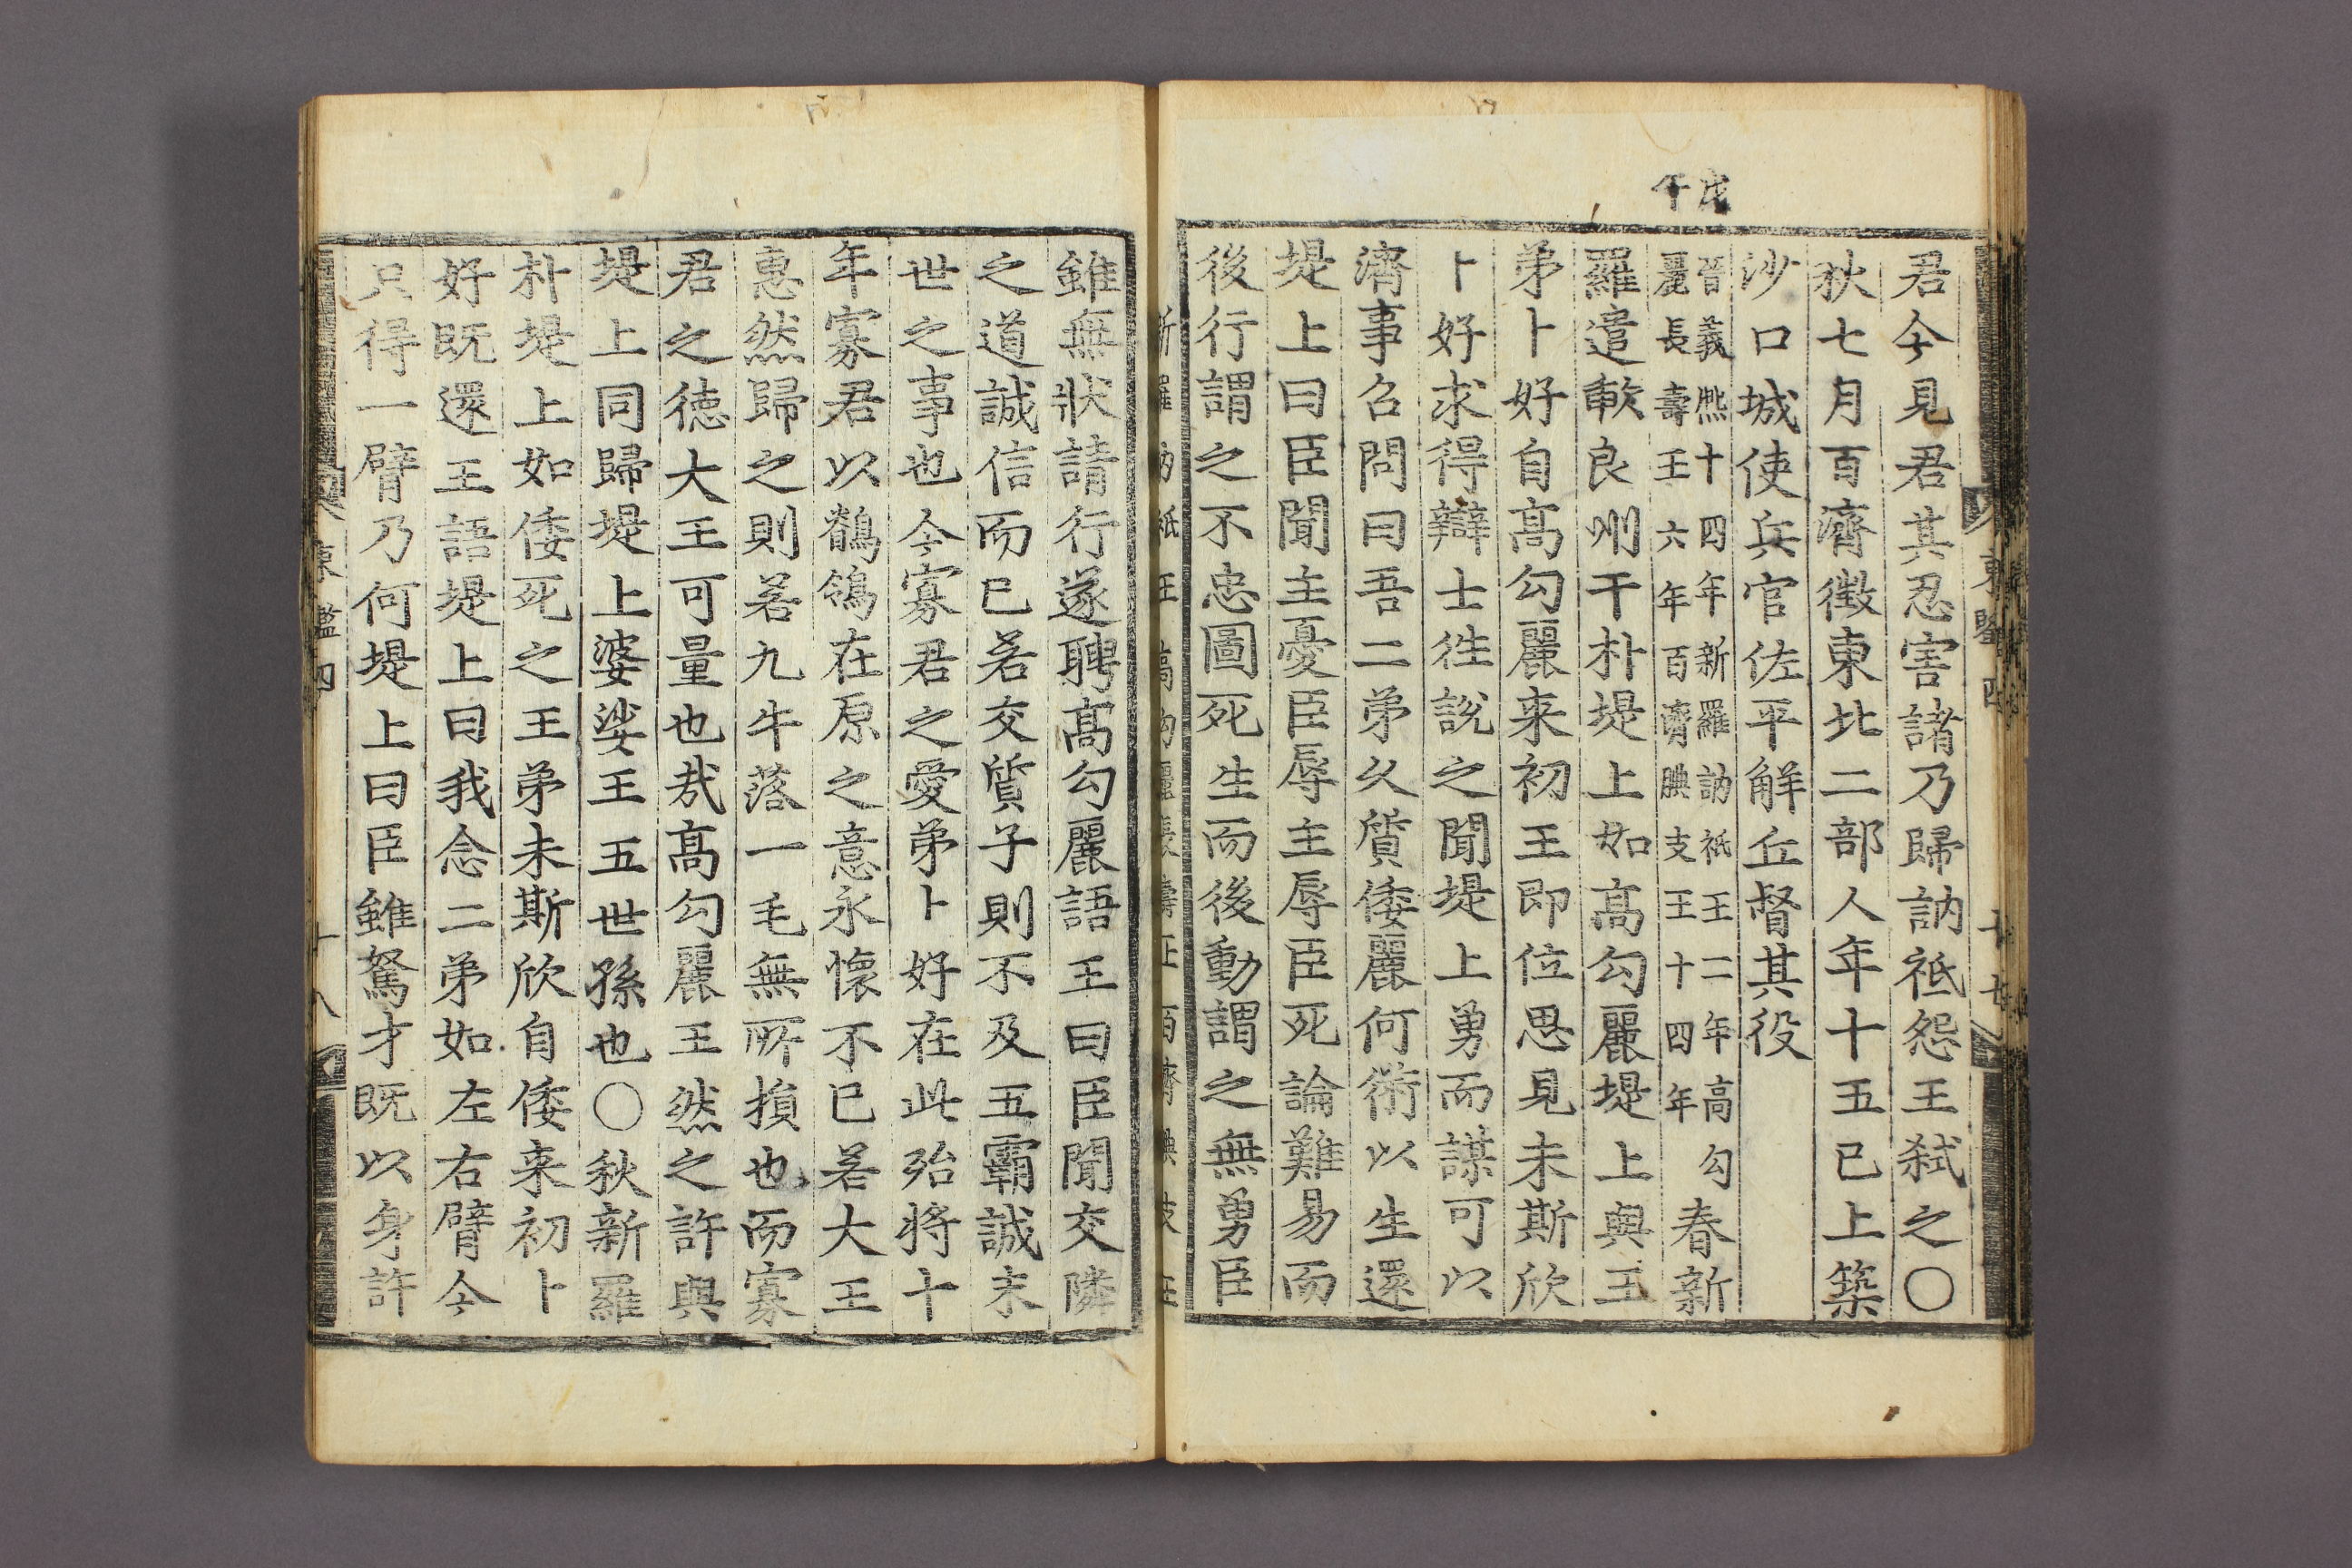 戊午
君今見君其忍害諸乃歸訥祗怨王弑之〇
秋七月百濟徵東北二部人年十五已上築
沙口城使兵官佐平解丘督其役
晉義熙十四年新羅訥祗王二年高勾
麗長壽王六年百濟腆支王十四年
春新
羅遣歃良州干朴堤上如高勾麗堤上與王
弟卜好自高勾麗来初王即位思見未斯欣
卜好求得辯士往說之聞堤上勇而謀可以
濟事召問曰吾二弟久質倭麗何術以生還
堤上曰臣聞主憂臣辱主辱臣死論難易而
後行謂之不忠圖死生而後動謂之無勇臣
雖無狀請行遂聘高勾麗語王曰臣聞交隣
之道誠信而已若交質子則不及五霸誠末
世之事也今寡君之愛弟卜好在此殆將十
年寡君以鶺鴒在原之意永懷不已若大王
惠然歸之則若九牛落一毛無所損也而寡
君之德大王可量也哉高勾麗王然之許與
堤上同歸堤上婆娑王五世孫也〇秋新羅
朴堤上如倭死之王弟未斯欣自倭来初卜
好旣還王語堤上曰我念二弟如左右臂今
只得一臂乃何堤上曰臣雖駑才旣以身許
十八